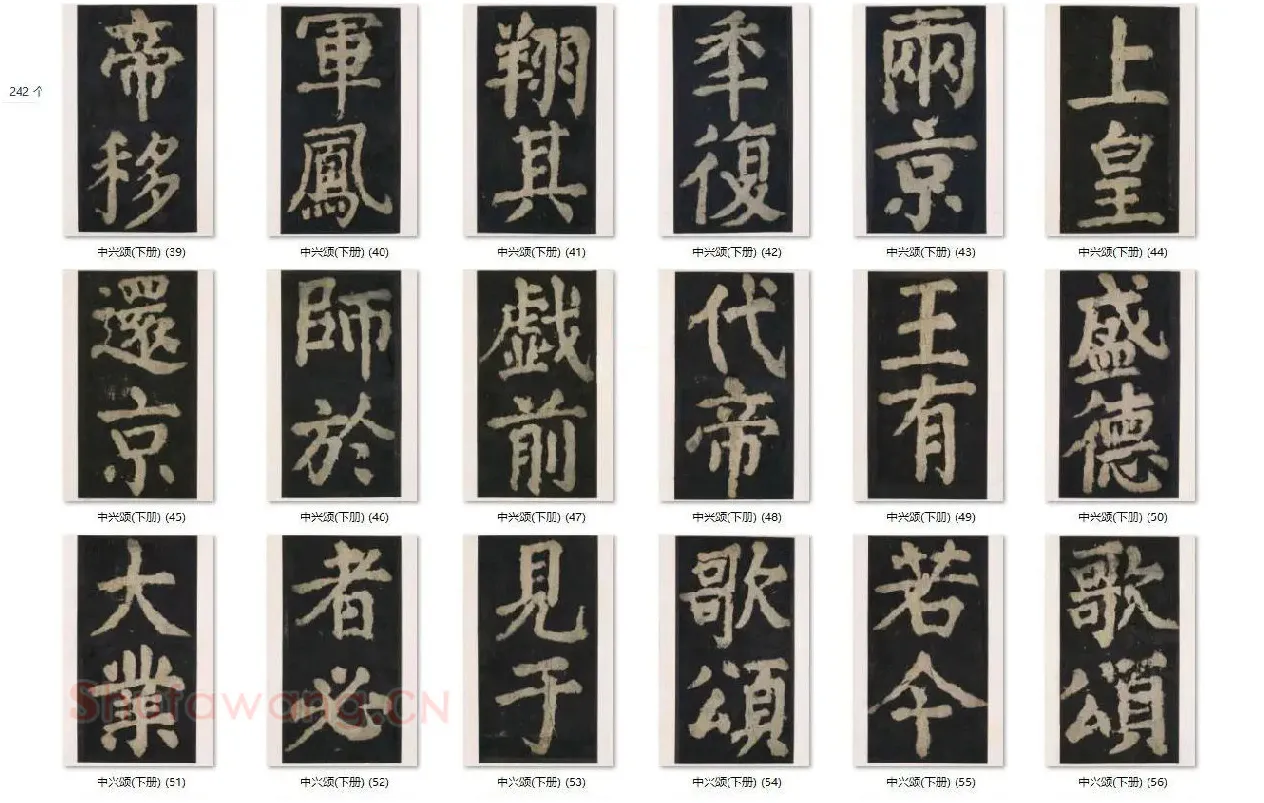 242 个
帝移
中兴颂(下册) (39)
軍鳳
中兴颂(下册) (40)
翔其
中兴颂(下册) (41)
秊復
中兴颂(下册) (42)
兩京
中兴颂(下册) (43)
上皇
中兴颂(下册) (44)
還京
中兴颂(下册) (45)
師於
中兴颂(下册) (46)
戯前
中兴颂(下册) (47)
代帝
中兴颂(下册) (48)
王有
中兴颂(下册) (49)
盛德
中兴颂(下册) (50)
大業
中兴颂(下册) (51)
者必
中兴颂(下册) (52)
見于
中兴颂(下册) (53)
歌頌
中兴颂(下册) (54)
若今
中兴颂(下册) (55)
歌頌
中兴颂(下册) (56)
Shufawang.CN